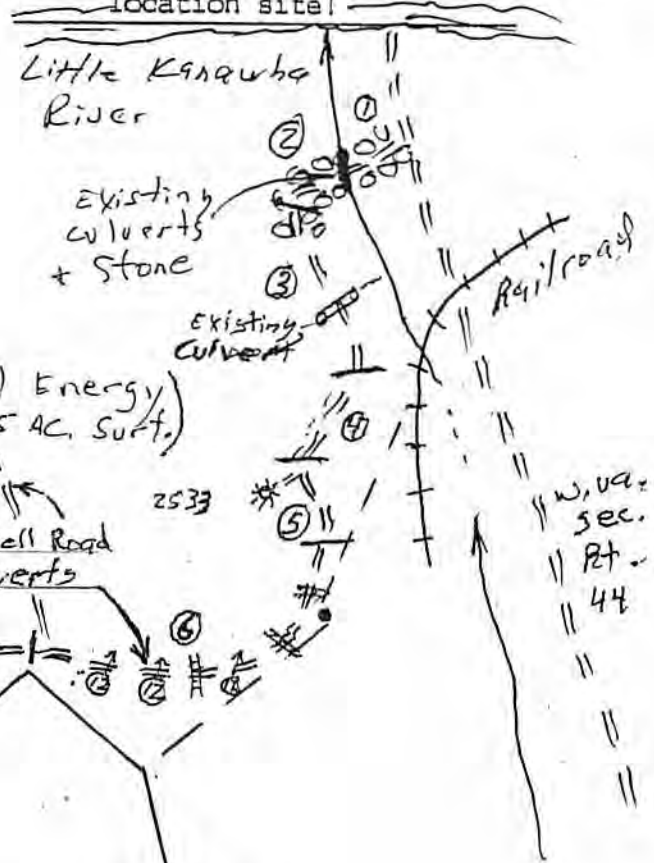 location site!
Little Kanawha
River
①
②
Existing
culverts
+ Stone
③
Existing
Culvert
Railroad
) Energy
5 AC, Surf.)
④
2533
⑤
W. Va.
Sec.
Rt.
44
ell Road
verts
⑥
12
18